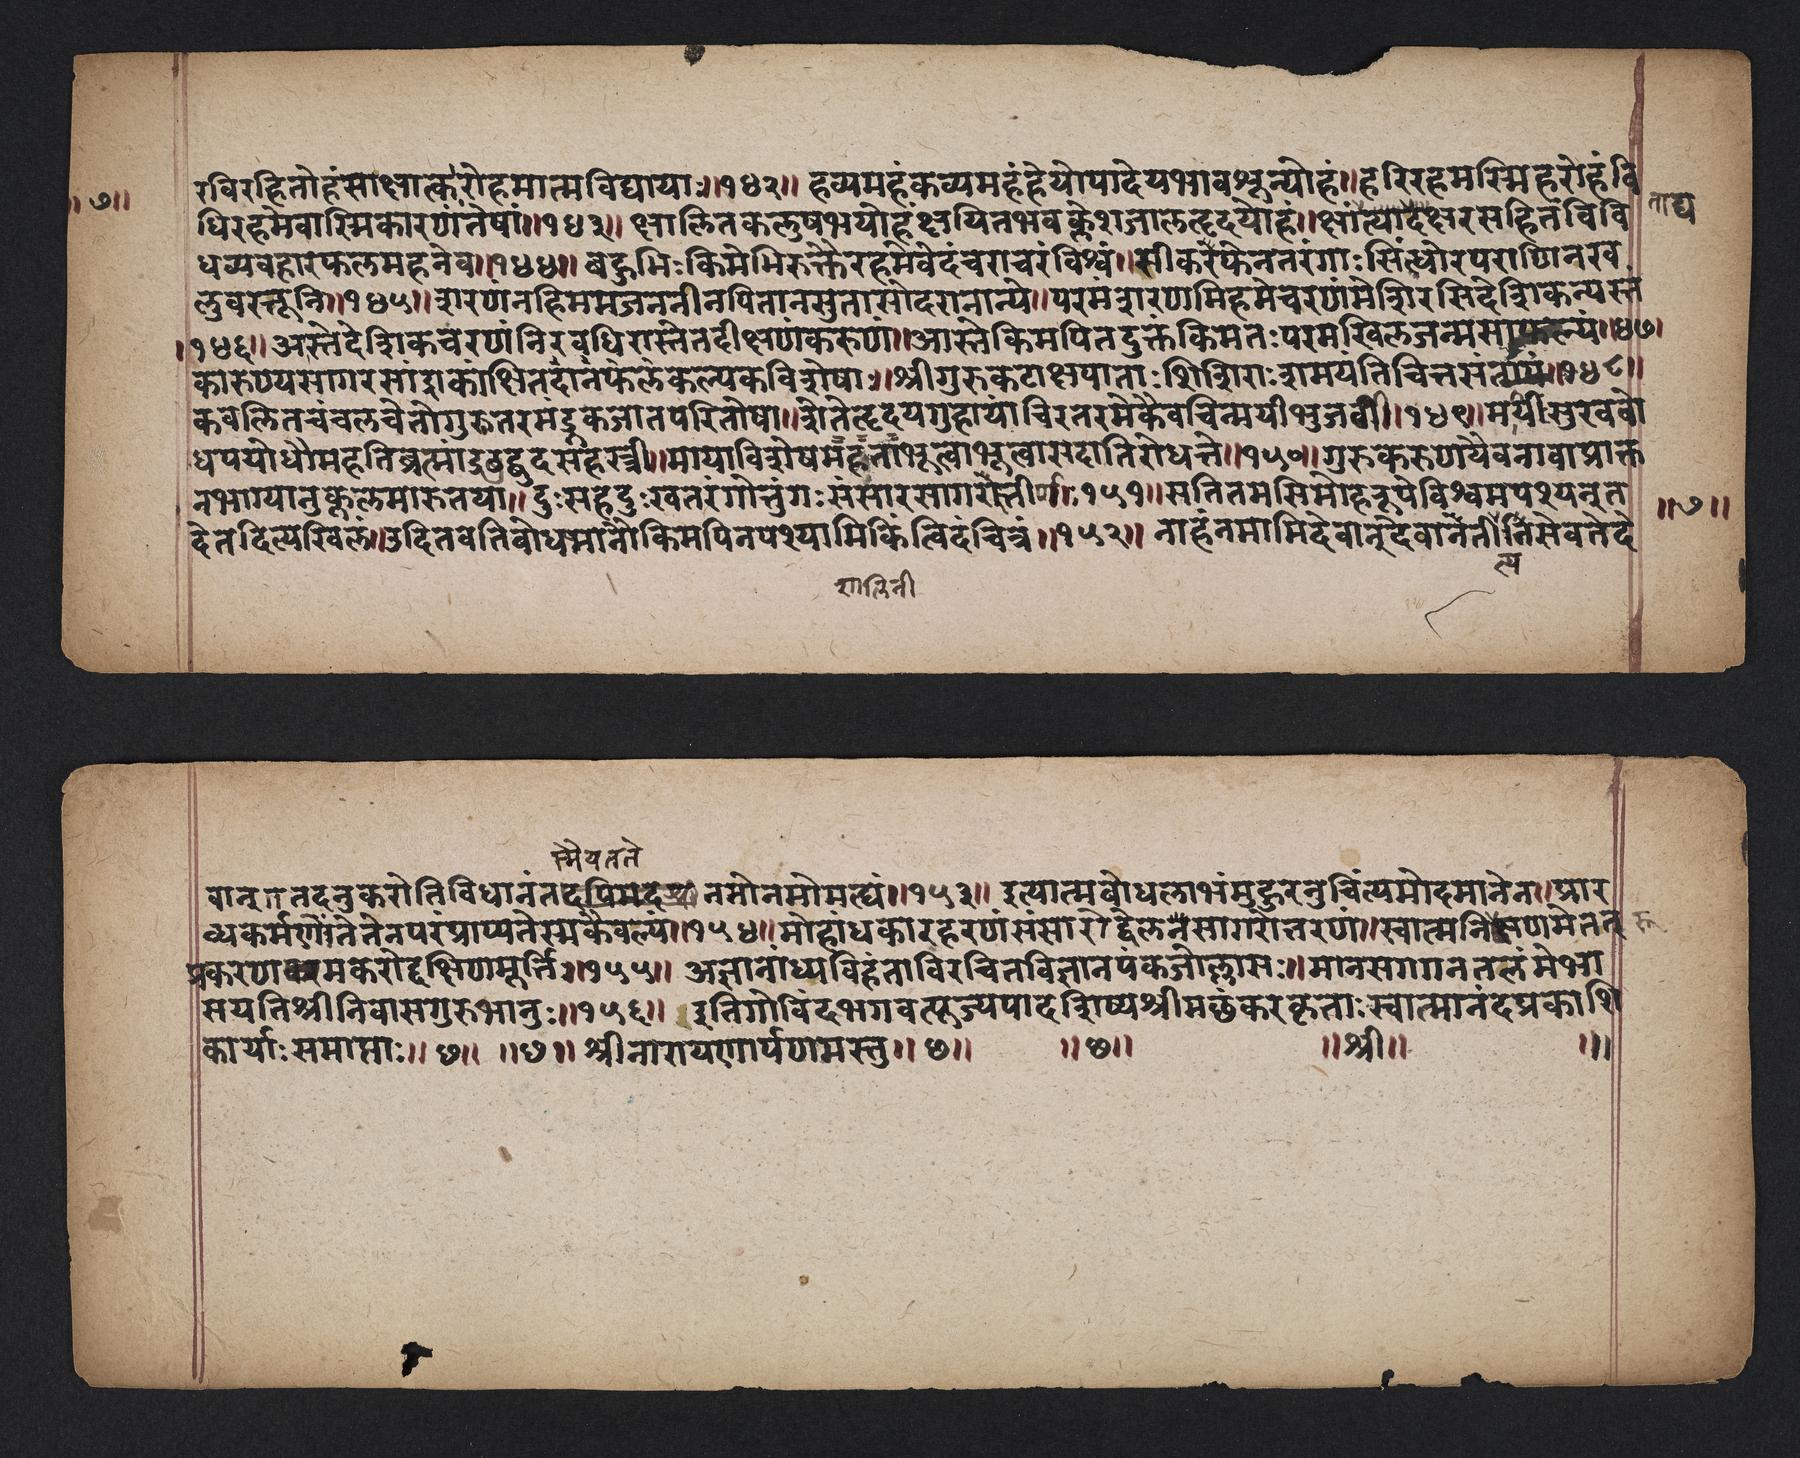 रविरहितोहंसाक्षात्करोहमात्मविद्यायाः॥१४२॥ हव्यमहंकव्यमहंहेयोपादेयभावशून्योहं॥हरिरहमस्मिहरोहंवि
॥७॥
धिरहमेवास्मिकारणंतेषां॥१४३॥ क्षालितकलुषभयोहंक्षयितभवक्लेशजालहृदयोहं॥क्षांत्याद्यक्षरसहितंविवि
ताद्य
धव्यवहारफलमहनेव॥१४४॥ बहुभिःकिमेभिरुक्तैरहमेवेदंचराचरंविश्वं॥सीकरफेनतरंगाःसिंधोरपराणिनख
लुवस्तूनि॥१४५॥शरणंनहिममजननीनपितानसुतासोदरानान्ये॥परमंशरणमिहमेचरणंमेशिरसिदेशिकन्यस्तं
॥१४६॥अस्तेदेशिकचरणंनिरवधिरास्तेतदीक्षणेकरुणा॥आस्तेकिमपितदुक्तंकिमतःपरमखिलजन्मसाफल्यं॥४७॥
कारुण्यसागरसांद्राकांक्षितदानेफलेकल्पकविशेषाः॥श्रीगुरुकटाक्षपाताःशिशिराःशमयंतिचित्तसंतापं॥१४८॥
कवलितचंचलचेतोगुरुतरमंडुकजातपरितोषा॥शेतेहृदयगुहायांचिरतरमेकैवचिन्मयीभुजगी॥१४९॥मयीसुखबो
धपयोधौमहतिब्रह्मांडबुद्बुदसहस्त्री॥मायाविशेषमहंताभूत्वाभूत्वासदातिरोधत्ते॥१५०॥गुरुकरुणयैवनावाप्राक्त
नभाग्यानुकूलमारुतया॥दुःसहदुःखतरंगोत्तुंगःसंसारसागरोत्तीर्णः१५१॥सतितमसिमोहरूपेविश्वमपश्यन्नुत
॥७॥
देतदित्यखिलं॥उदितवतिबोधभानौकिमपिनपश्यामिकिंत्विदंचित्रं॥१५२॥ नाहंनमामिदेवान्देवानतीतिसेवतेदे
त्य
शालिनी
स्मैयतते
वान्॥नतदनुकरोतिविधानंतद नमोनमोमह्यं॥१५३॥ इत्यात्मबोधलाभंमुहुरनुचिंत्यमोदमानेन॥प्रार
ब्धकर्मणोंतेतेनपरंप्राप्यतेस्मकैवल्यं॥१५४॥मोहांधकारहरणंसंसारोद्वेलनसागरोत्तरणं॥स्वात्मनि
प्रकरणा मकरोद्दक्षिणमूर्त्तिः॥१५५॥ अज्ञानांध्यविहंताविरचितविज्ञानपंकजोल्लासः॥मानसगगनतलंमेभा
सयतिश्रीनिवासगुरुभानुः॥१५६॥ इतिगोविंदभगवत्पूज्यपादशिष्यश्रीमछंकरकृताःस्वात्मानंदप्रकाशि
कार्याःसमाप्ताः॥छ॥ ॥छ॥श्रीनारायणार्पणमस्तु॥छ॥ ॥छ॥ ॥श्री॥ ॥॥